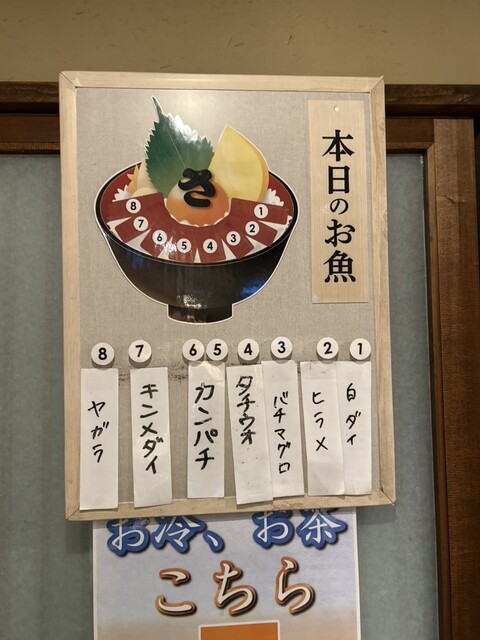 本日のお魚
さ
1
2
3
4
5
6
7
8
1
白ダイ
2
ヒラメ
3
バチマグロ
4
タチウオ
5
6
カンパチ
7
キンメダイ
8
ヤガラ
お冷、お茶
こちら